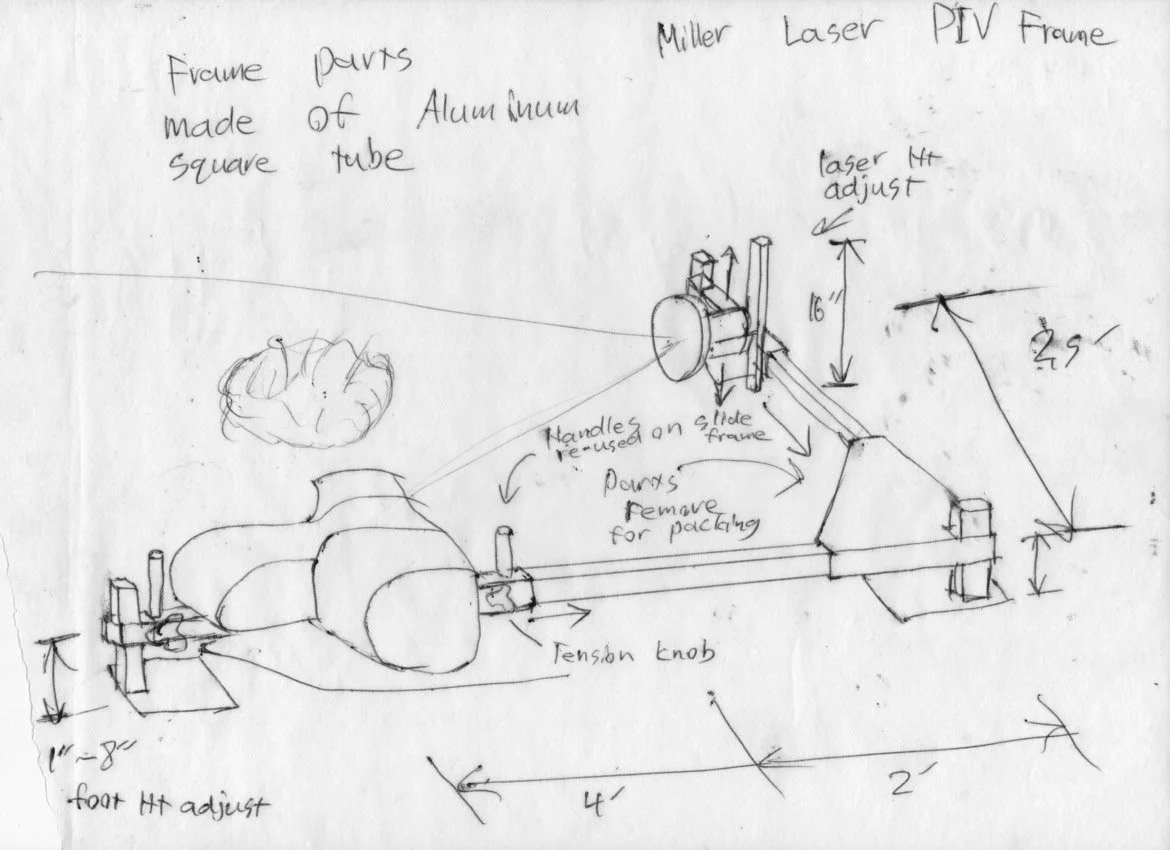 Miller Laser PIV Frame
Frame parts
made of Aluminum
square tube
laser Ht
adjust
16"
Handles
re-used on slide
frame
Parts
remove
for packing
Tension knob
1"-8"
foot Ht adjust
4'
2'